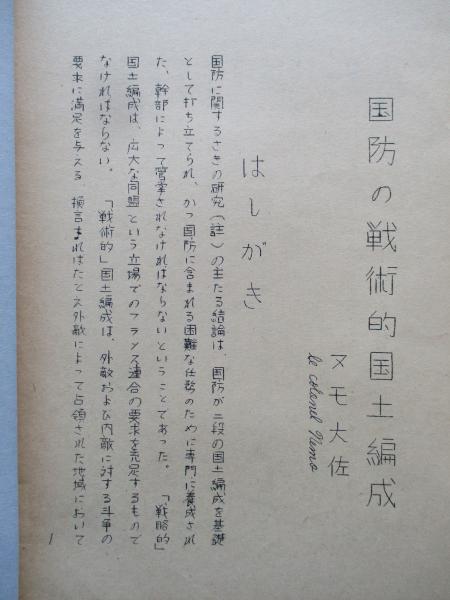 国防の戦術的国土編成
ヌモ大佐
le colonel Némo
はしがき
国防に関するさきの研究(註)の主たる結論は、国防が二段の国土編成を基礎
として打ち立てられ、かつ国防に含まれる困難な任務のために専門に養成され
た、幹部によって管掌されなければならないということであった。 「戦略的」
国土編成は、広大な同盟という立場でのフランス連合の要求を充足するもので
なければならない。 「戦術的」国土編成は、外敵および内敵に対する斗争の
要求に満足を与える 換言すればたとえ外敵によって占領された地域において
1